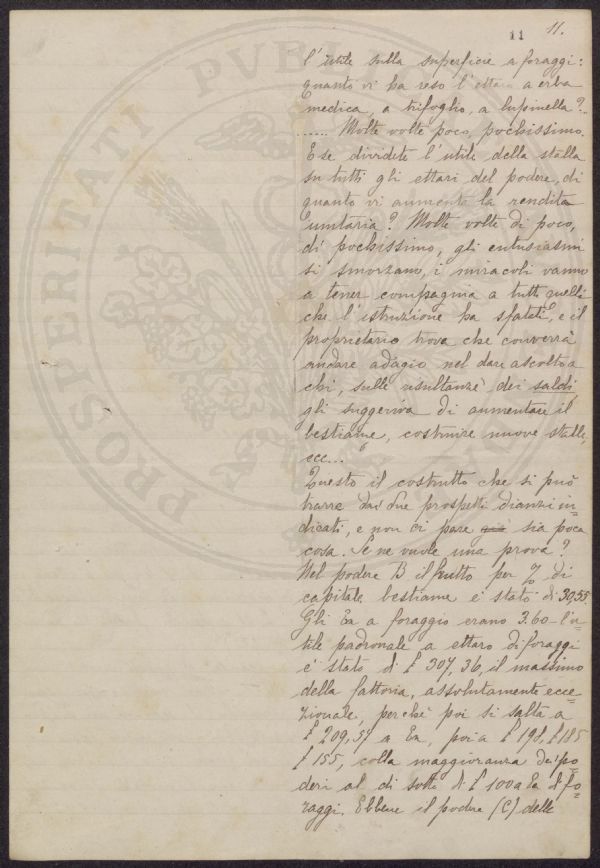 11 11.
l'utile sulla superficie a foraggi:
quanto vi ha reso l'ettaro a erba
medica, a trifoglio, a lupinella?..
...... Molte volte poco, pochissimo.
E se dividete l'utile della stalla
su tutti gli ettari del podere, di
quanto vi aumenta la rendita
unitaria? Molte volte di poco,
di pochissimo, gli entusiasmi
si smorzano, i miracoli vanno
a tener compagnia a tutti quelli
che l'istruzione ha sfatati, e il
proprietario trova che converrà
andare adagio nel dare ascolto a
chi, sulle resultanze dei saldi,
gli suggeriva di aumentare il
bestiame, costruire nuove stalle,
ecc..."
Questo il costrutto che si può
trarre dai due prospetti dianzi in-
dicati, e non ci pare già sia poca
cosa. Se ne vuole una prova?
Nel podere B il frutto per % di
capitale bestiame è stato di 30,55.
Gli Ea a foraggio erano 3.60 - l'u-
tile padronale a ettaro di foraggi
è stato di £ 307,36, il massimo
della fattoria, assolutamente ecce-
zionale, perchè poi si salta a
£ 209,57 a Ea, poi a £ 198, £ 185
£ 155, colla maggioranza dei po-
deri al di sotto di £ 100 a Ea di fo-
raggi. Ebbene il podere (C) delle
PROSPERITATI PVBLI